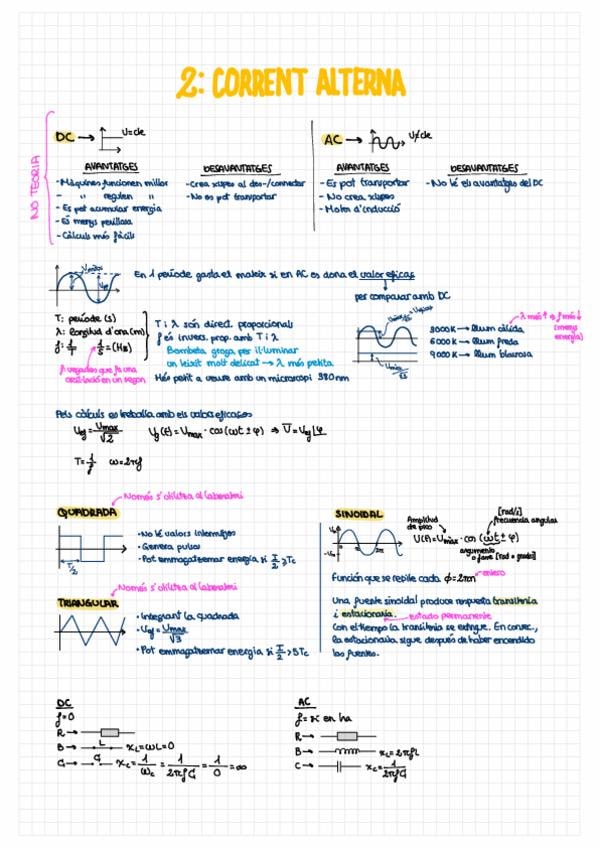 2: CORRENT ALTERNA
NO TEORIA
DC → U=cte
AVANTATGES
- Màquines funcionen millor
- " regulen "
- Es pot acumular energia
- És menys perillosa
- Càlculs més fàcils
DESAVANTATGES
- Crea xispes al des-/connectar
- No es pot transportar
AC → U≠cte
AVANTATGES
- Es pot transportar
- No crea xispes
- Motor d'inducció
DESAVANTATGES
- No té els avantatges del DC
En 1 període gasta el mateix si en AC es dona el valor eficaç
per comparar amb DC
T: període (s)
λ: longitud d'ona (m)
f: 1/T 1/s = (Hz)
# vegades que fa una oscil·lació en un segon
T i λ són direct. proporcionals
f és invers. prop. amb T i λ
Bombeta groga per il·luminar
un teixit molt delicat → λ més petita
Més petit a veure amb un microscopi 380nm
λ més ↑ o f més ↓
(menys energia)
3000K → llum càlida
6000K → llum freda
9000K → llum blavosa
Pels càlculs es treballa amb els valors eficaços
Uef = Umax/√2
Ug(t) = Umax · cos(ωt ± φ) ⇒ U = Uef|φ
T = 1/f ω = 2πf
Només s'utilitza al laboratori
QUADRADA
· No té valors intermitjos
· Genera pulsos
· Pot emmagatzemar energia si T/2 ≥ Tc
T/2
Només s'utilitza al laboratori
TRIANGULAR
· Integrant la quadrada
· Uef = Umax/√3
· Pot emmagatzemar energia si T/2 > 5Tc
SINOIDAL
Amplitud de pico
[rad/s]
frecuencia angular
U(t) = Umàx · cos (ωt ± φ)
argumento
o fase [rad o grados]
Función que se repite cada φ = 2πn
entero
Una fuente sinoidal produce respuesta transitoria
i estacionaria.
estado permanente
Con el tiempo la transitoria se extingue. En consec.,
la estacionaria sigue después de haber encendido
las fuentes.
DC
f=0
R →
B → L XL = ωL = 0
C → C Xc = 1/ωC = 1/2πfC = 1/0 = ∞
AC
f = si en ha
R →
B → XL = 2πfL
C → Xc = 1/2πfC